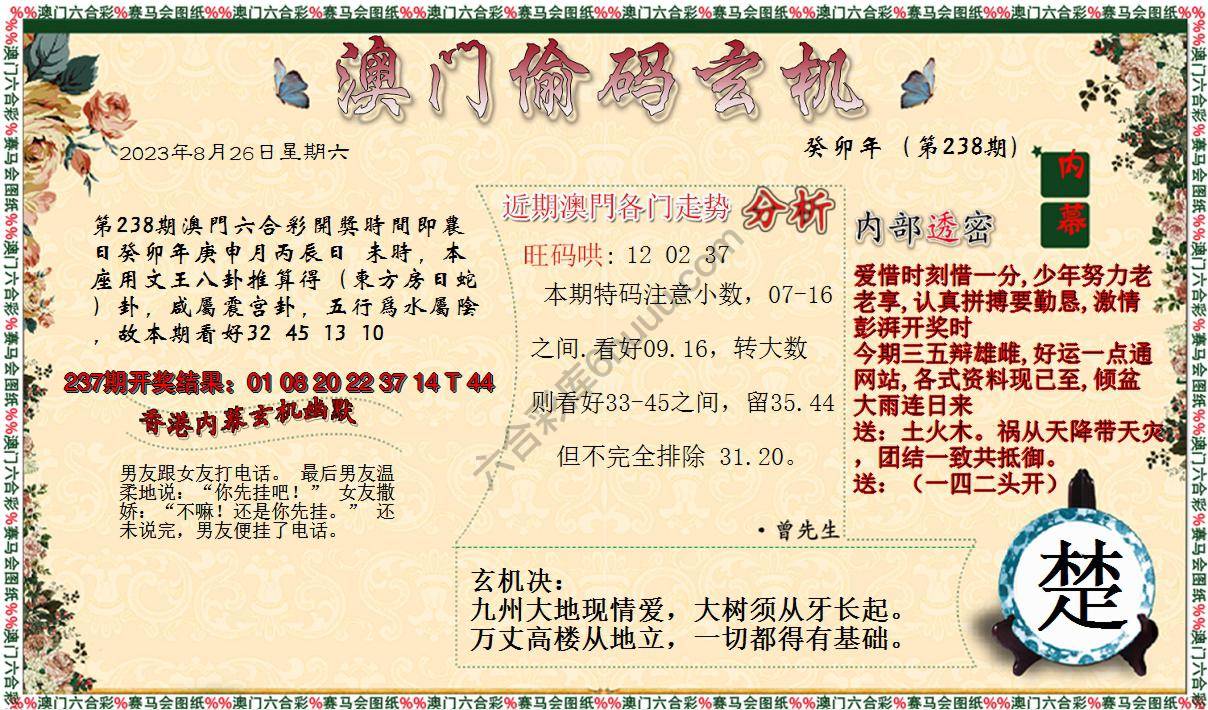 %%澳门六合彩%赛马会图纸%%澳门六合彩%赛马会图纸%%澳门六合彩%赛马会图纸%%澳门六合彩%赛马会图纸%%澳门六合彩%赛马会图纸%%澳门六合彩%赛马会图纸%%
澳门偷码玄机
2023年8月26日星期六
癸卯年（第238期）
内幕
第238期澳門六合彩開獎時間即農
日癸卯年庚申月丙辰日 未時，本
座用文王八卦推算得（東方房日蛇
）卦，咸屬震宫卦，五行爲水屬陰
，故本期看好32 45 13 10
237期开奖结果：01 08 20 22 37 14 T 44
香港内幕玄机幽默
男友跟女友打电话。 最后男友温
柔地说：“你先挂吧！” 女友撒
娇：“不嘛！还是你先挂。” 还
未说完，男友便挂了电话。
近期澳門各门走势 分析
旺码哄: 12 02 37
本期特码注意小数，07-16
之间.看好09.16，转大数
则看好33-45之间，留35.44
但不完全排除 31.20。
·曾先生
内部透密
爱惜时刻惜一分,少年努力老
老享,认真拼搏要勤恳,激情
彭湃开奖时
今期三五辩雄雌,好运一点通
网站,各式资料现已至,倾盆
大雨连日来
送：土火木。祸从天降带天灾
，团结一致共抵御。
送：（一四二头开）
玄机决：
九州大地现情爱，大树须从牙长起。
万丈高楼从地立，一切都得有基础。
楚
%%澳门六合彩%赛马会图纸%%澳门六合彩%赛马会图纸%%澳门六合彩%赛马会图纸%%澳门六合彩%赛马会图纸%%澳门六合彩%赛马会图纸%%澳门六合彩%赛马会图纸%%